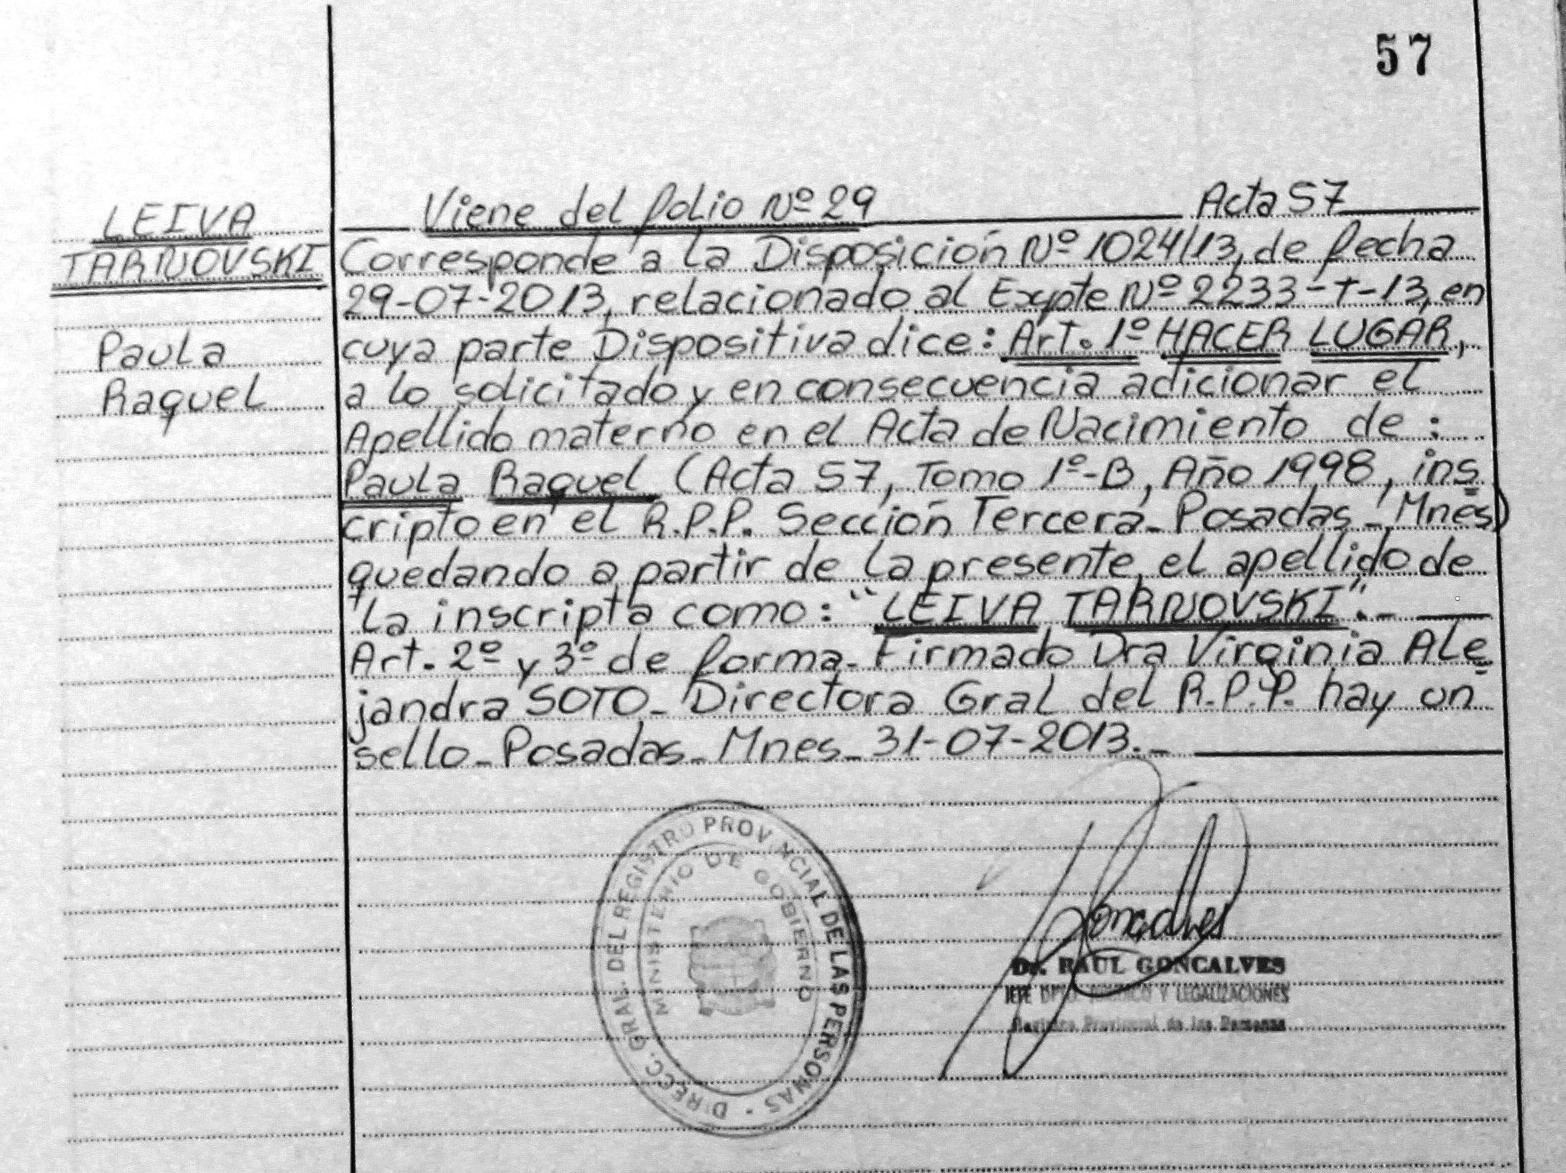 57
LEIVA
TARNOVSKI
Paula
Raquel
Viene del folio Nº 29 Acta 57
Corresponde a la Disposición Nº 1024/13, de fecha
29-07-2013, relacionado al Expte Nº 2233-T-13, en
cuya parte Dispositiva dice: Art. 1º HACER LUGAR,
a lo solicitado y en consecuencia adicionar el
Apellido materno en el Acta de Nacimiento de:
Paula Raquel (Acta 57, Tomo 1º-B, Año 1998, ins
cripto en el R.P.P. Sección Tercera- Posadas- Mnes)
quedando a partir de la presente, el apellido de
la inscripta como: "LEIVA TARNOVSKI".-
Art. 2º y 3º de forma- Firmado Dra Virginia Ale
jandra SOTO- Directora Gral del R.P.P. hay un
sello- Posadas- Mnes- 31-07-2013.-
DIRECC. GRAL. DEL REGISTRO PROVINCIAL DE LAS PERSONAS -
MINISTERIO DE GOBIERNO
Goncalves
Dr. RAUL GONCALVES
JEFE DPTO. JURIDICO Y LEGALIZACIONES
Registro Provincial de las Personas